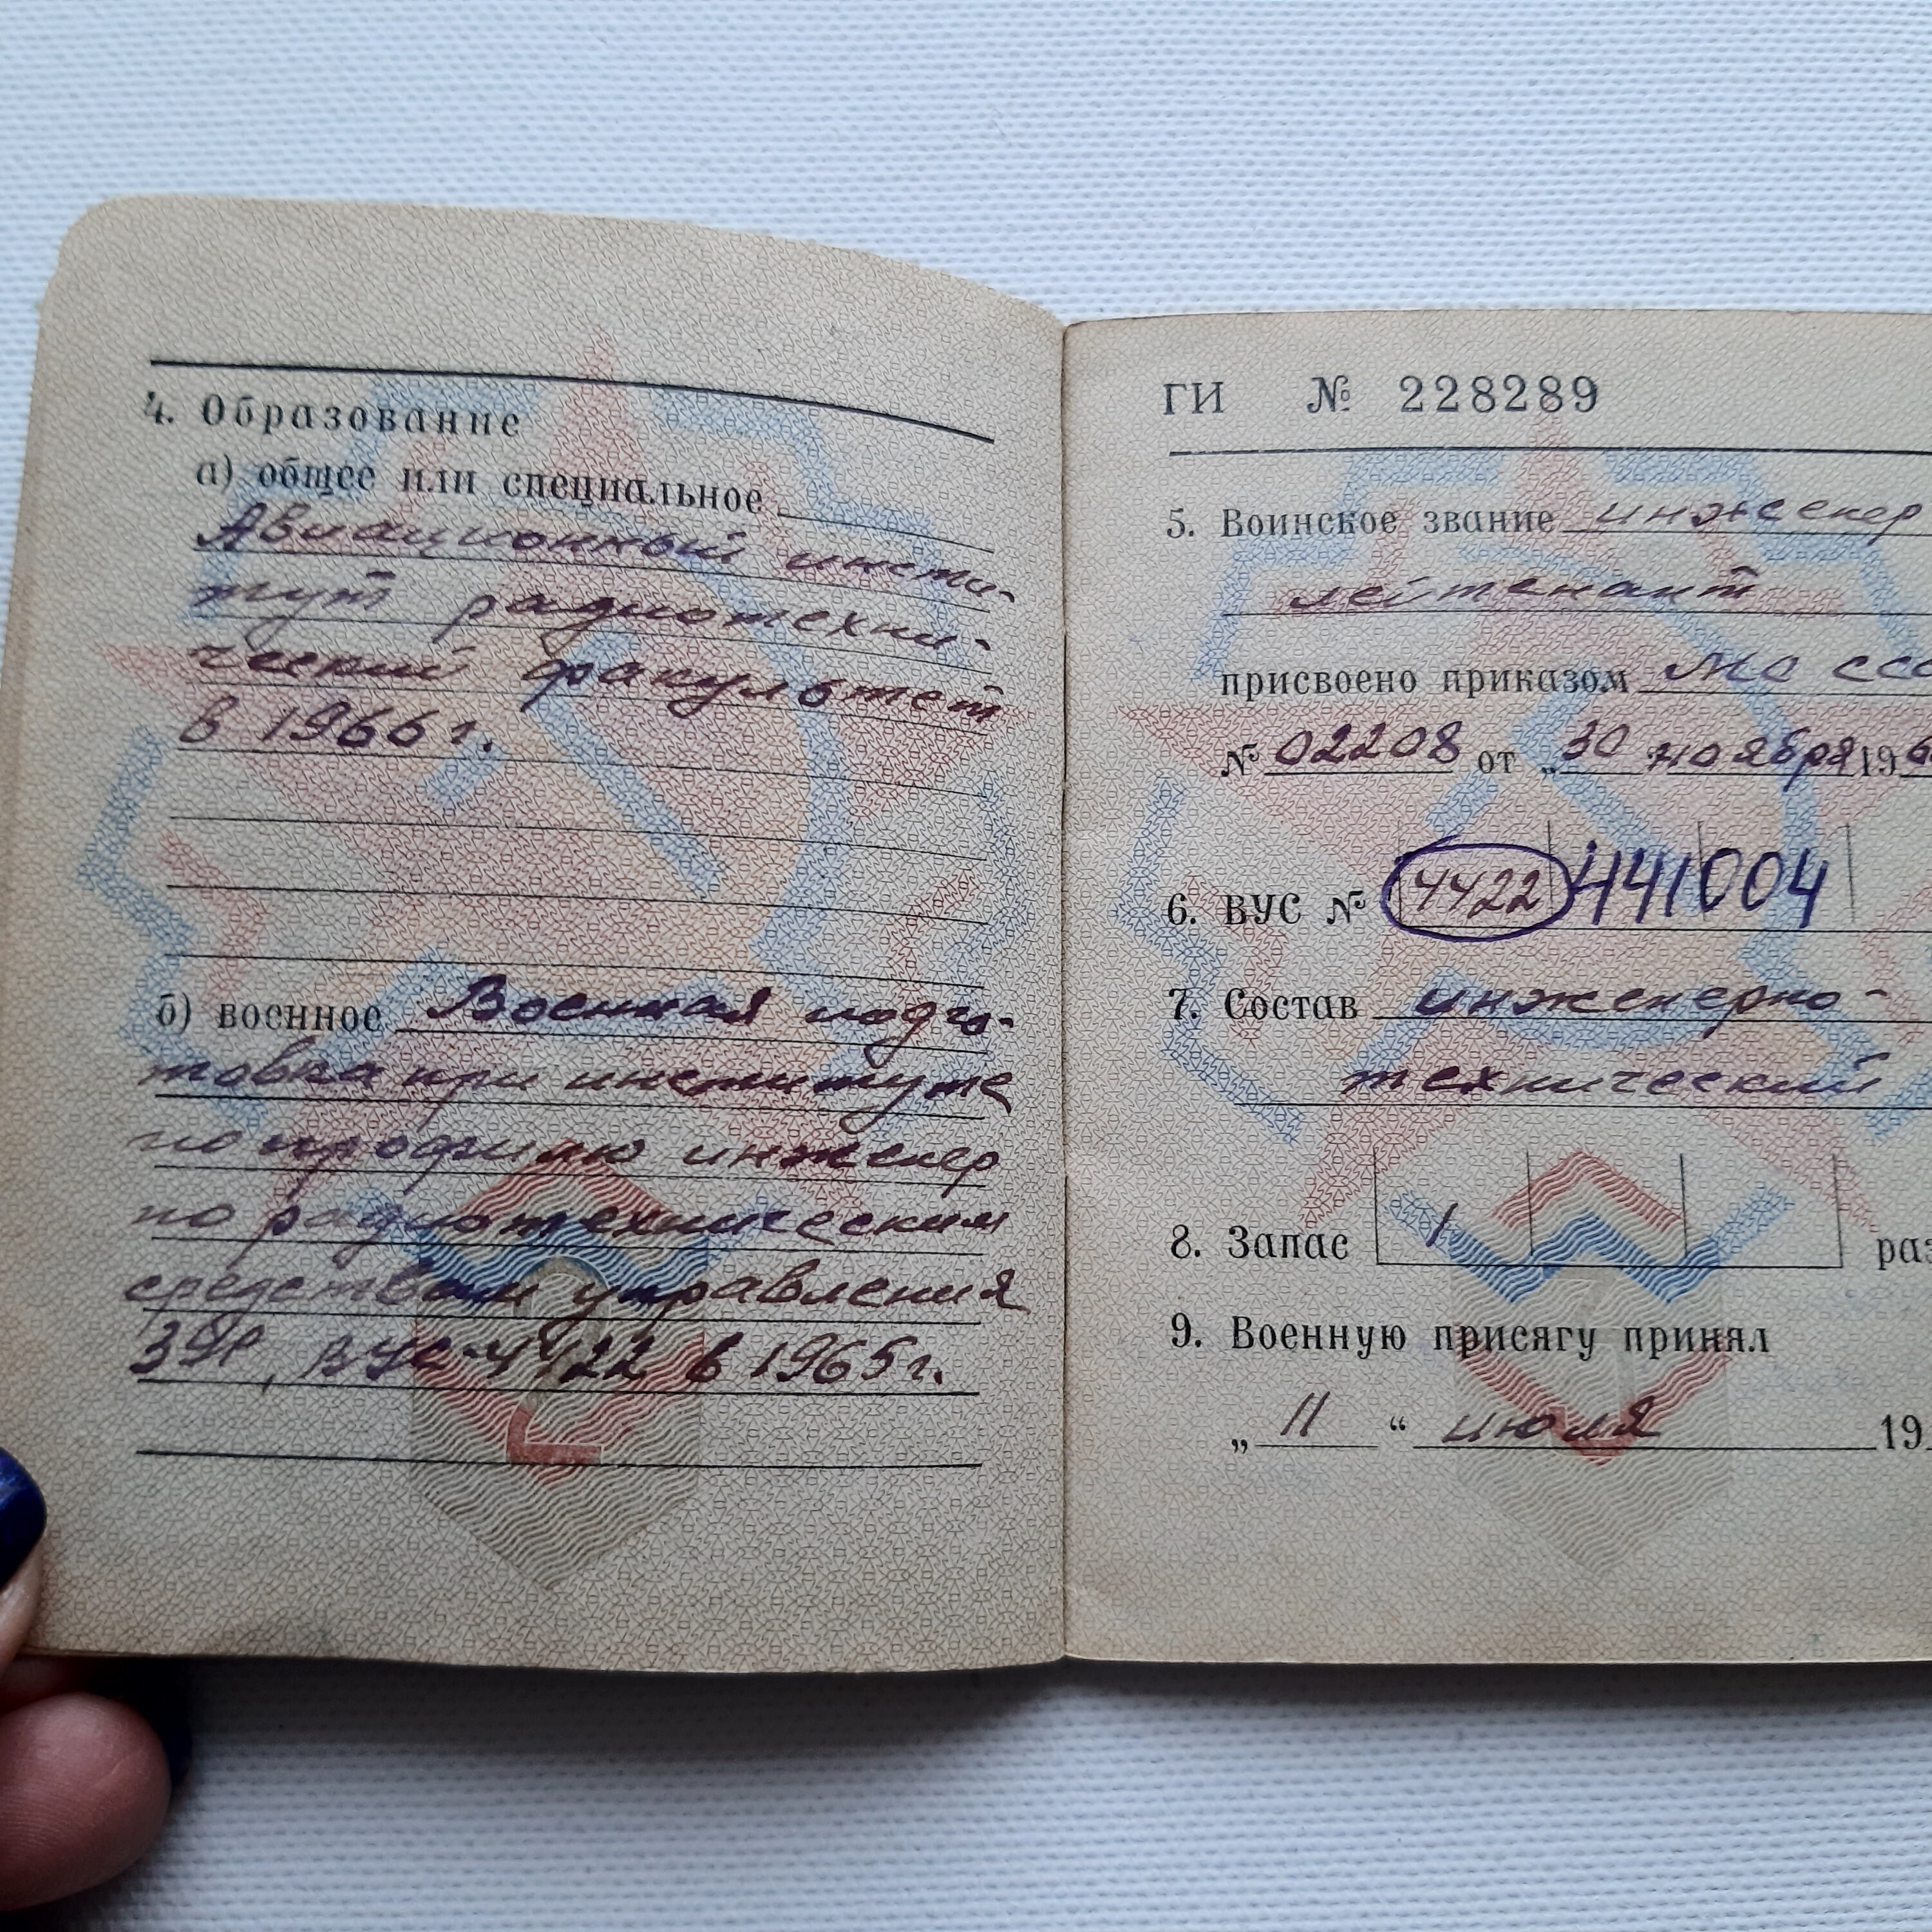 4. Образование
а) общее или специальное
Авиационный инсти-
тут радиотехни-
ческий факультет
в 1966 г.
б) военное Военная подго-
товка при институте
по профилю инженер
по радиотехническим
средствам управления
ЗУР, ВУС-4422 в 1965 г.
ГИ № 228289
5. Воинское звание инженер
лейтенант
присвоено приказом МО ССС
№ 02208 от „30 ноября 196
6. ВУС № 4422 441004
7. Состав инженерно-
технический
8. Запас 1 раз
9. Военную присягу принял
„ 11 “ июля 19